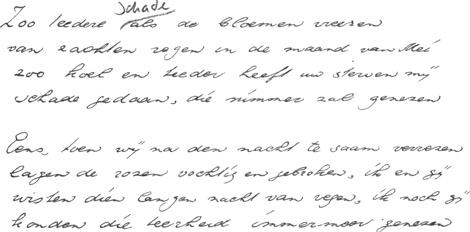 schade
Zoo teedere als de bloemen vreezen
van zachten regen in de maand van Mei
zoo koel en teeder heeft uw sterven mij
schade gedaan, die nimmer zal genezen
Eens, toen wij na den nacht te saam verrezen
lagen de rozen vochtig en gebroken, ik en gij
wisten dien langen nacht van regen, ik noch gij
konden die teerheid immermeer genezen